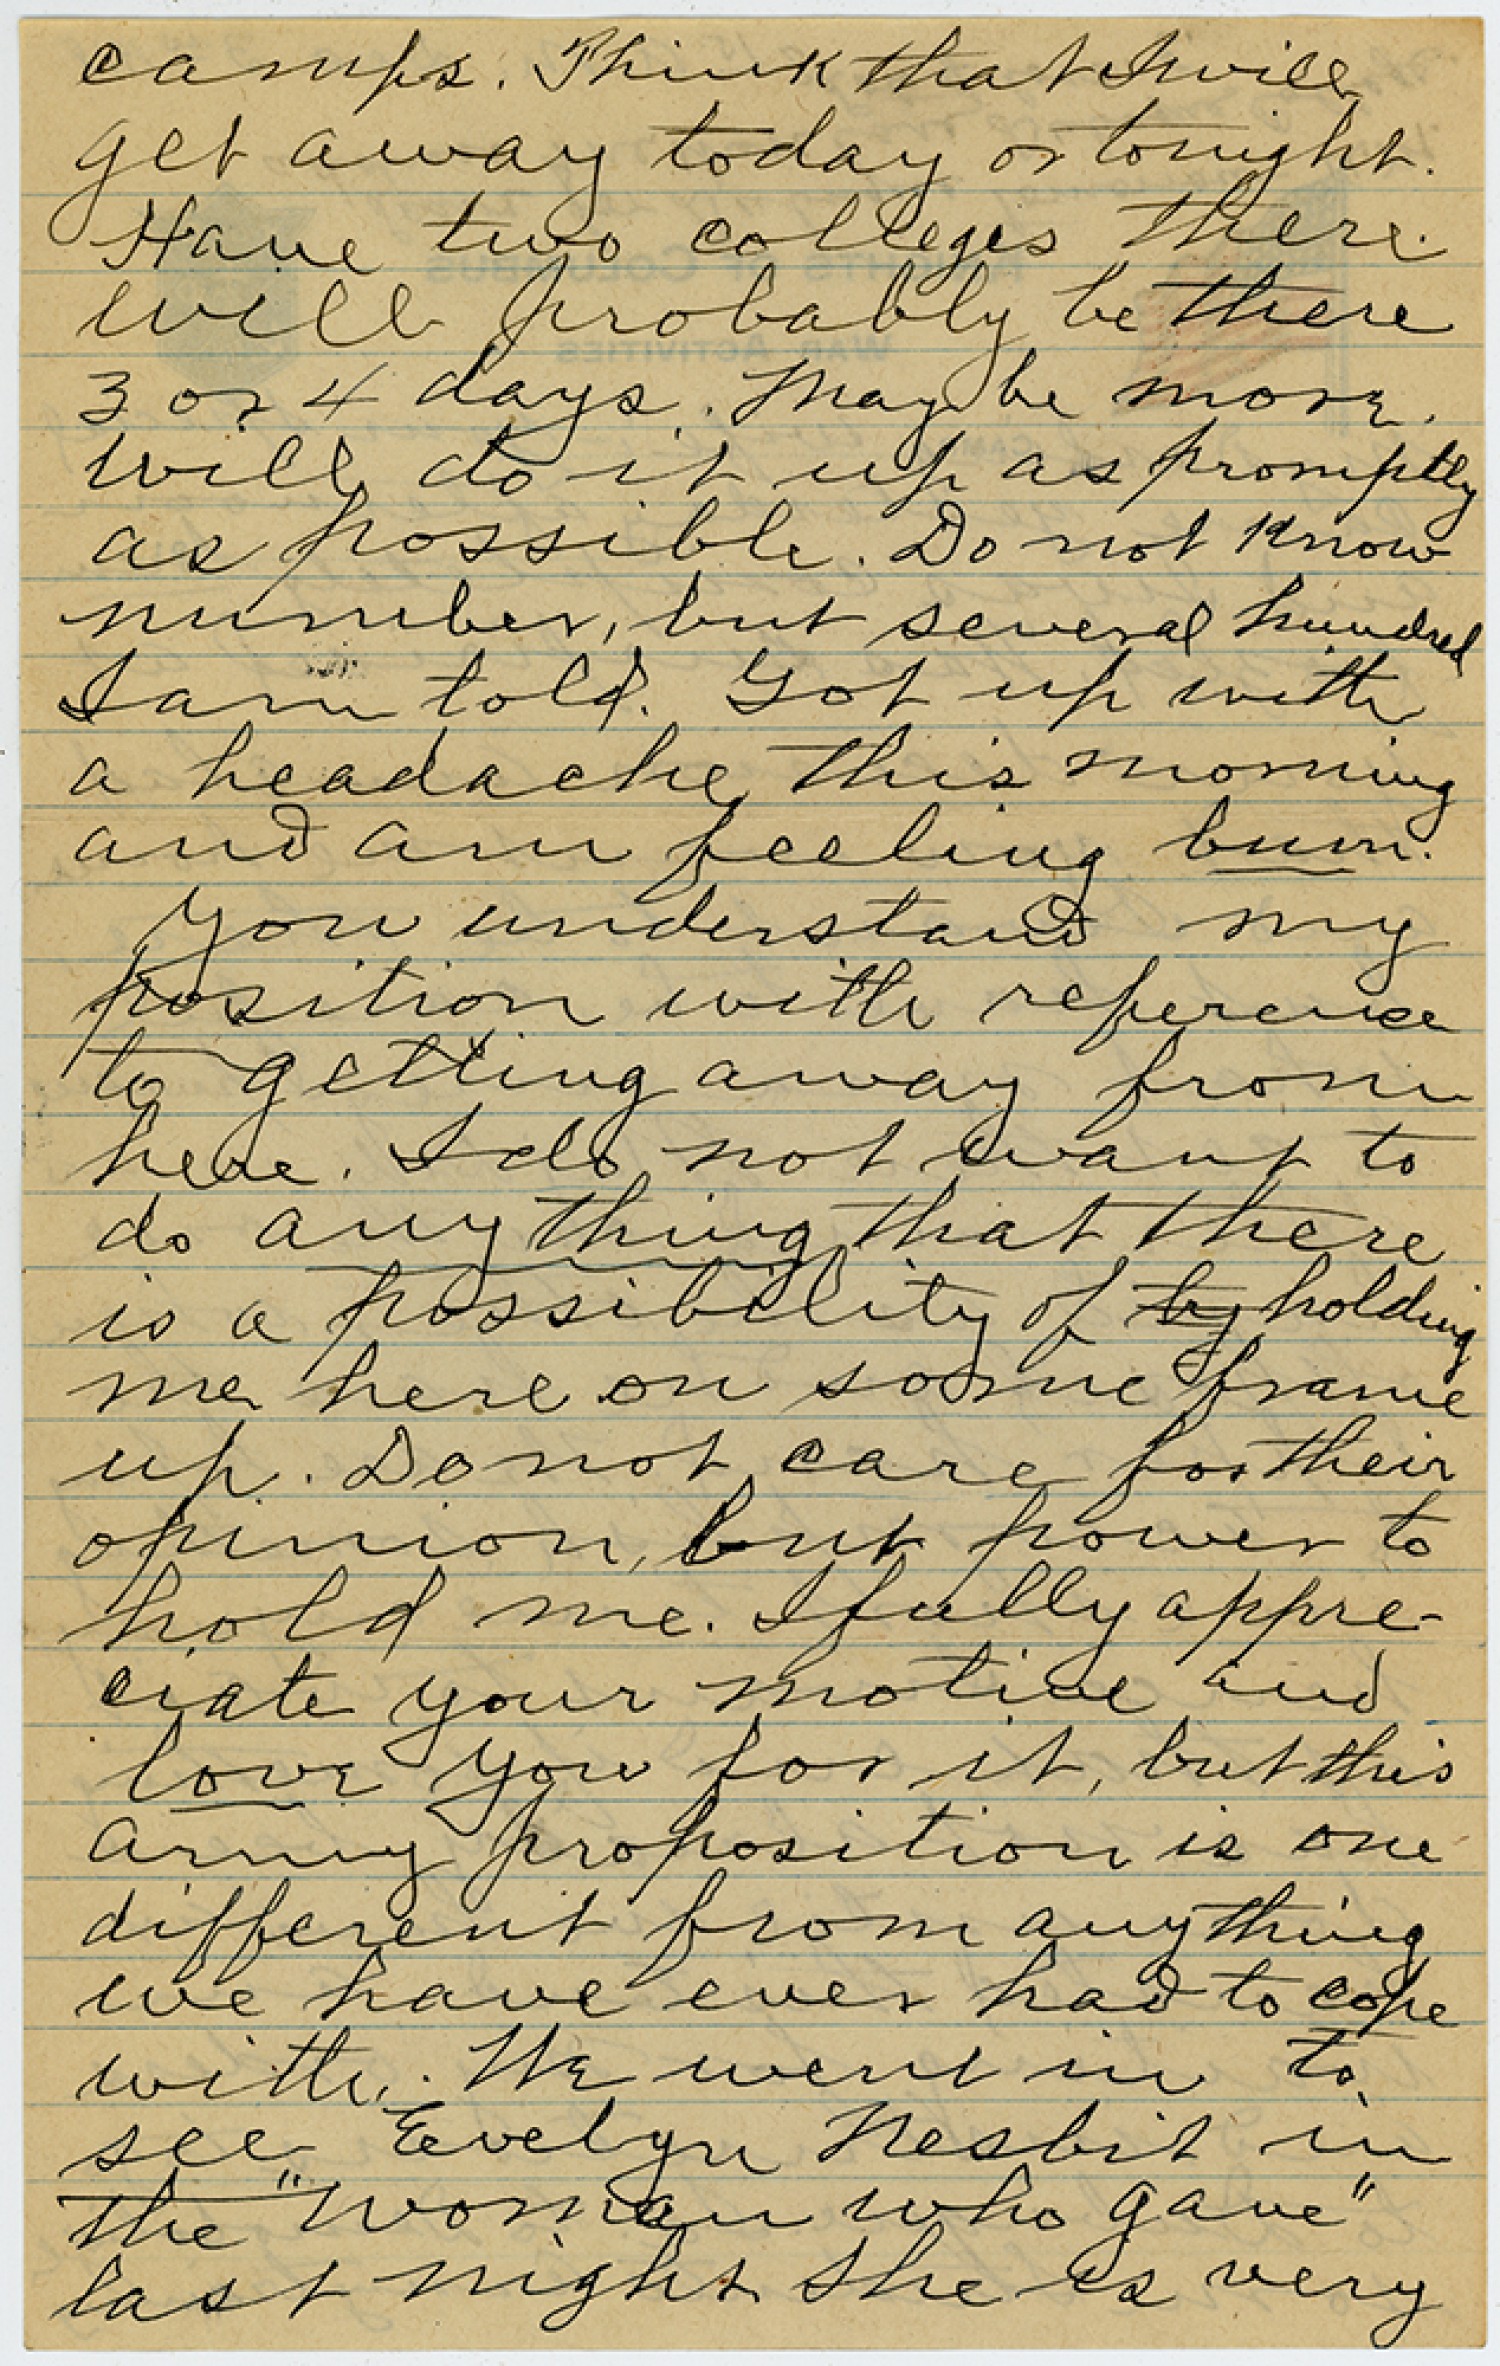 camps. Think that I will
get away today or tonight.
Have two colleges there.
will probably be there
3 or 4 days. May be more.
will do it up as promptly
as possible. Do not know
number, but several hundred
I am told. Got up with
a headache this morning
and am feeling bum.
You understand my
position with reference
to getting away from
here. I do not want to
do anything that there
is a possibility of by holding
me here on some frame
up. Do not care for their
opinion, but power to
hold me. I fully appre-
ciate your motive and
love you for it, but this
army proposition is one
different from anything
we have ever had to cope
with. We went in to
see Evelyn Nesbit in
the "Woman who gave"
last night She is very